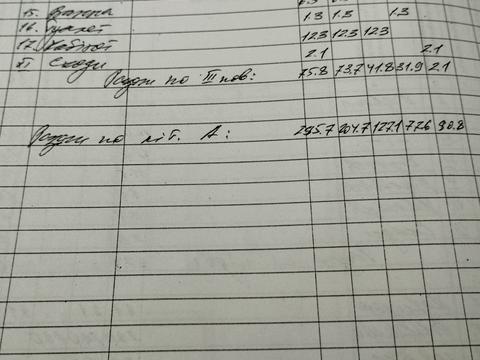 15. Ванна 1.3 1.3 1.3
16. туалет
17. Кабінет 12.3 12.3 12.3
VI Сходи 2.1 2.1
Разом по III пов: 75.8 73.7 41.8 31.9 2.1
Разом по літ. А: 295.7 204.7 127.1 77.6 90.8